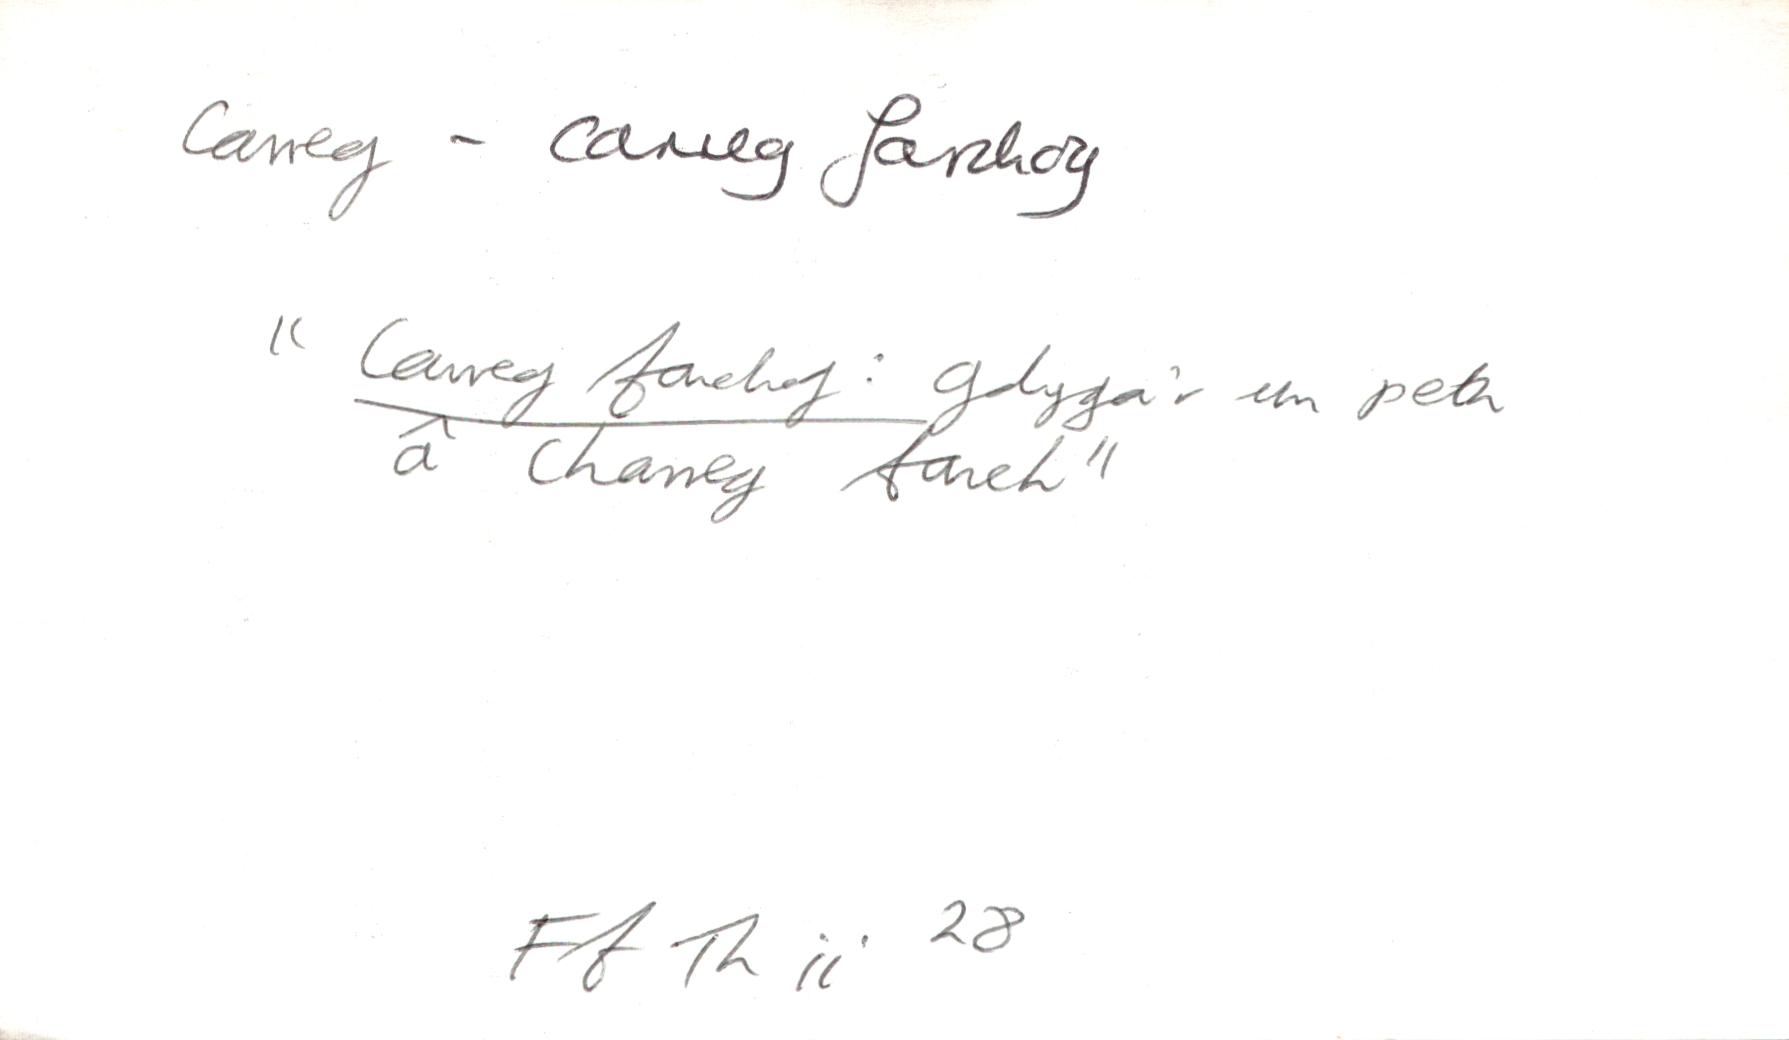 Carreg - carreg farchog
"Carreg farchog: golyga'r un peth
â charreg farch"
Ff Th ii 28